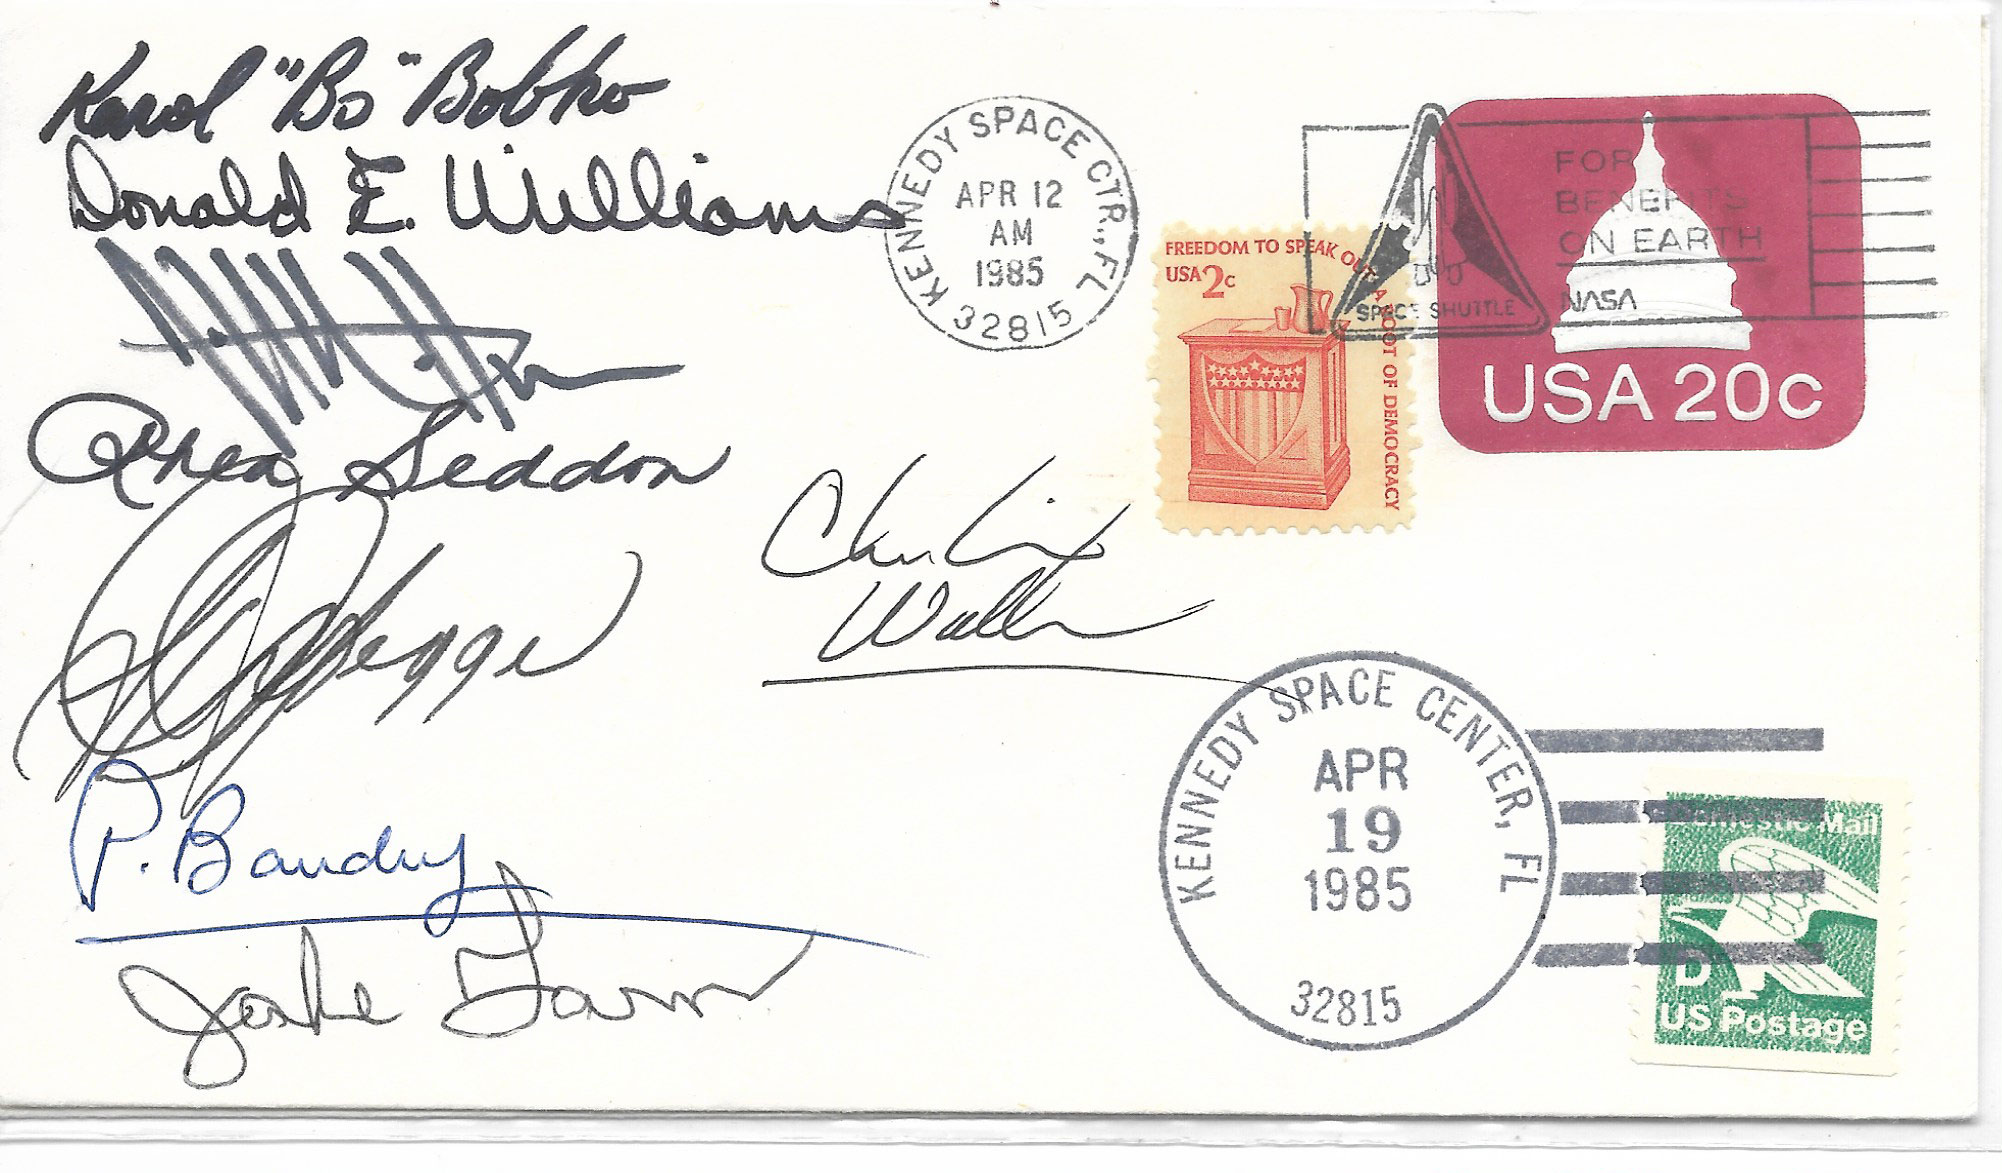 Karol "Bo" Bobko
Donald E. Williams
Rhea Seddon
P. Baudry
Jake Garn
Charlie
Walker
KENNEDY SPACE CTR., FL
APR 12
AM
1985
32815
FREEDOM TO SPEAK OUT A ROOT OF DEMOCRACY
USA 2c
SPACE SHUTTLE
FOR
BENEFITS
ON EARTH
NASA
USA 20c
KENNEDY SPACE CENTER, FL
APR
19
1985
32815
Domestic Mail
D
US Postage